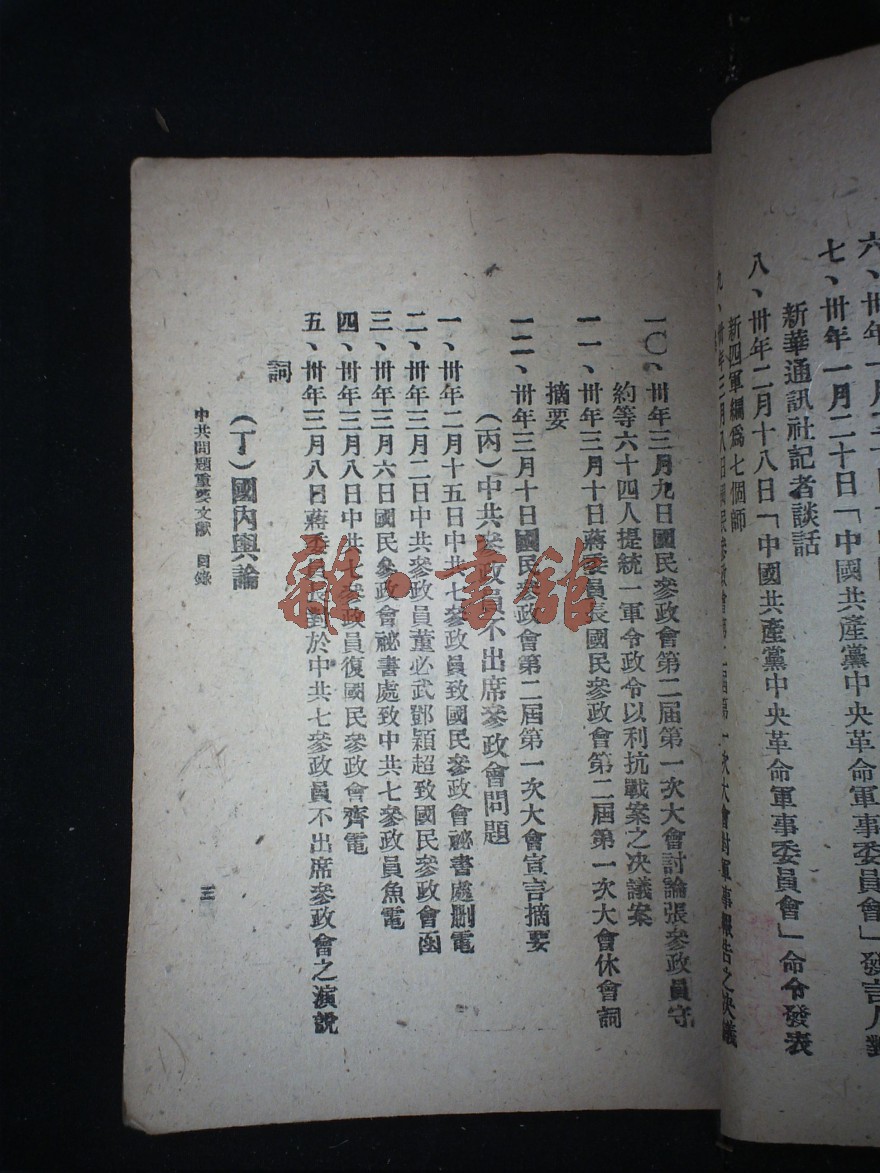 七、卅年一月二十日「中國共產黨中央革命軍事委員會」發言人對
新華通訊社記者談話
八、卅年二月十八日「中國共產黨中央革命軍事委員會」命令發表
新四軍編爲七個師
九、卅年三月八日國民參政會第二屆第一次大會對軍事報告之決議
一〇、卅年三月九日國民參政會第二屆第一次大會討論張參政員守
約等六十四人提統一軍令政令以利抗戰案之決議案
一一、卅年三月十日蔣委員長國民參政會第二屆第一次大會休會詞
摘要
一二、卅年三月十日國民參政會第二屆第一次大會宣言摘要
(丙)中共參政員不出席參政會問題
一、卅年二月十五日中共七參政員致國民參政會祕書處刪電
二、卅年三月二日中共參政員董必武鄧穎超致國民參政會函
三、卅年三月六日國民參政會祕書處致中共七參政員魚電
四、卅年三月八日中共七參政員復國民參政會齊電
五、卅年三月八日蔣委員長對於中共七參政員不出席參政會之演說
詞
(丁)國內輿論
中共問題重要文獻 目錄
三
雜·書館